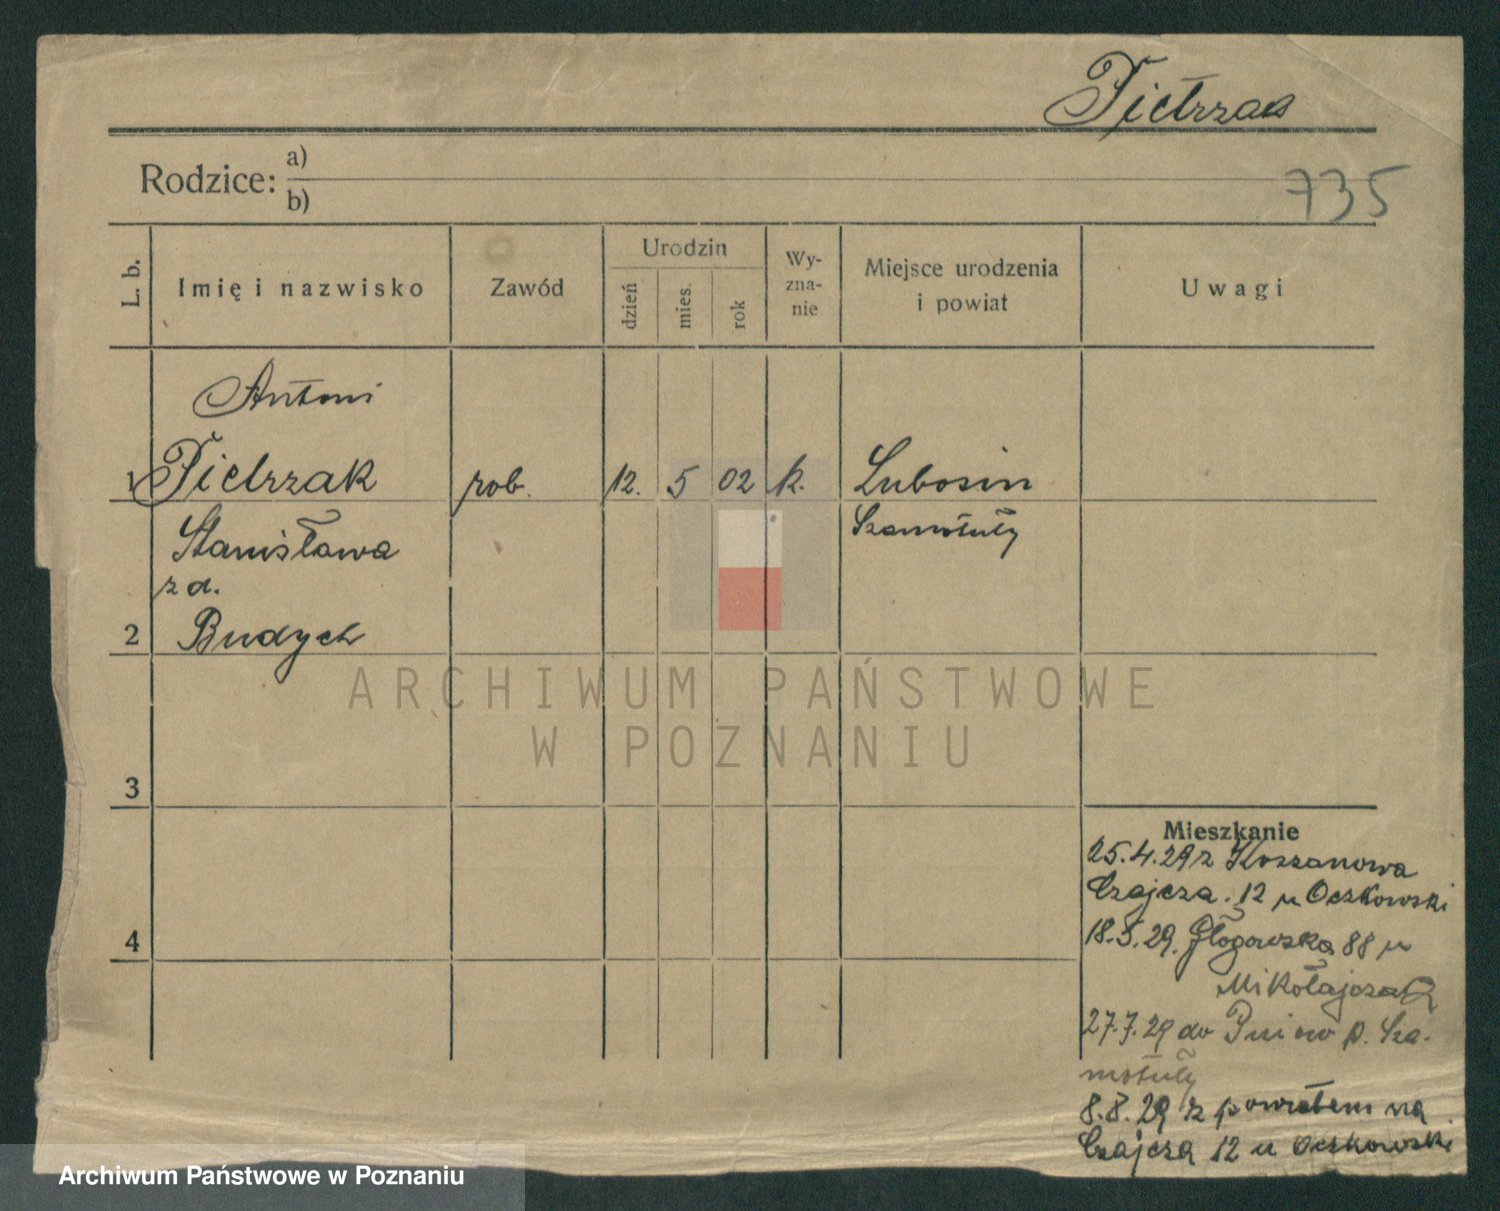 Pietrzak
Rodzice: a)
b)
735
L. b.
Imię i nazwisko
Zawód
Urodzin
dzień
mies.
rok
Wy-
zna-
nie
Miejsce urodzenia
i powiat
Uwagi
Antoni
1 Pietrzak rob. 12. 5 02 k. Lubosin
Szamotuły
Stanisława
z d.
2 Budych
3
4
Mieszkanie
25.4.29 z Koszanowa
Czajcza. 12 u Oczkowski
18.5.29. Głogowska 88 u
Mikołajczak
27.7.29 do Pniew p. Sza-
motuły
8.8.29 z powrotem na
Czajcza 12 u Oczkowski
ARCHIWUM PAŃSTWOWE
W POZNANIU
Archiwum Państwowe w Poznaniu